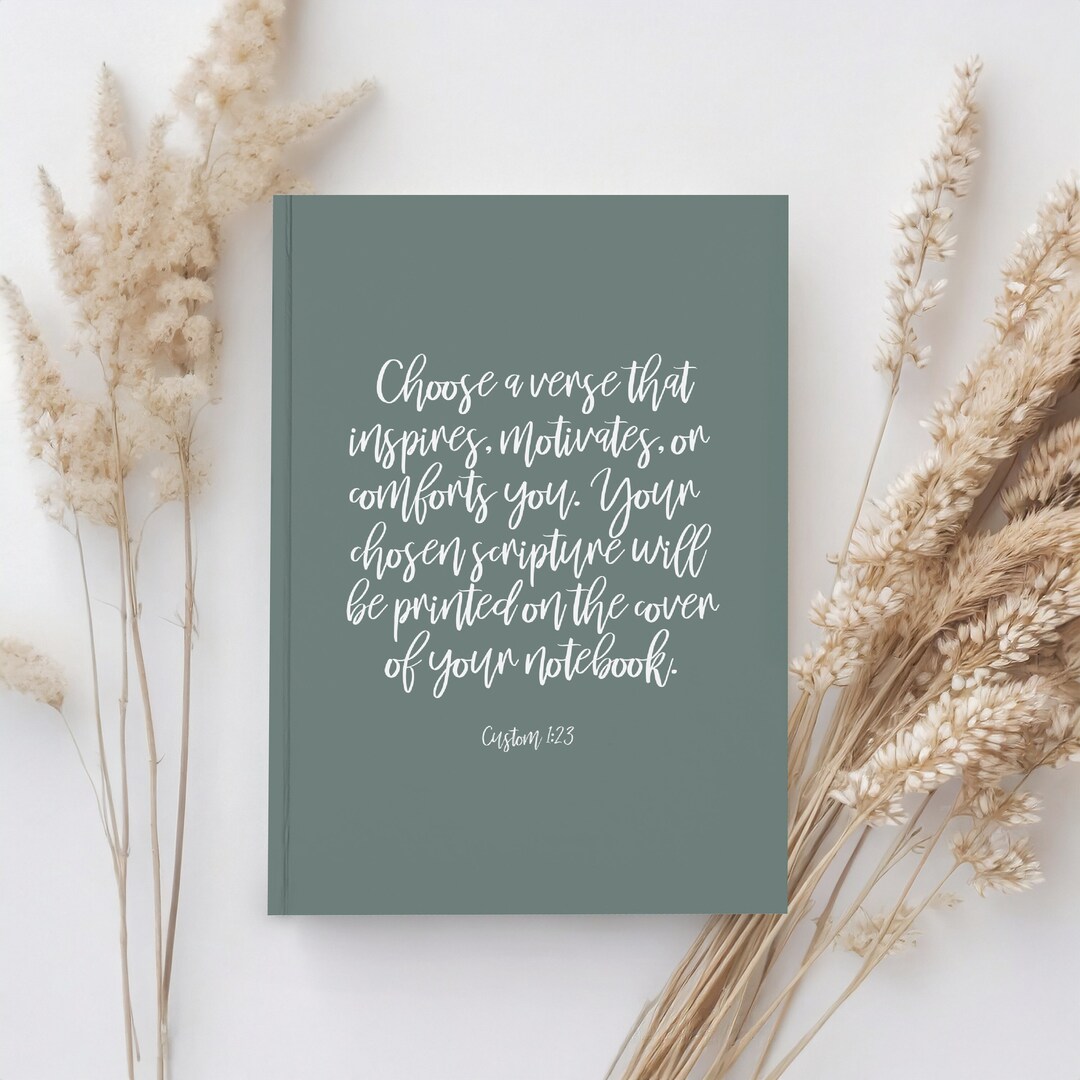 Choose a verse that
inspires, motivates, or
comforts you. Your
chosen scripture will
be printed on the cover
of your notebook.
Custom 1:23